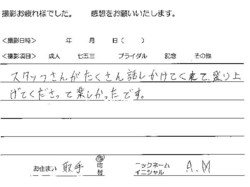 撮影お疲れ様でした。 感想をお願いいたします。
<撮影日時> 年 月 日( )
<撮影項目> 成人 七五三 ブライダル 記念 その他
スタッフさんがたくさん話しかけてくれて、盛り上
げてくださって楽しかったです。
お住まい 取手 市 ニックネーム イニシャル A.M